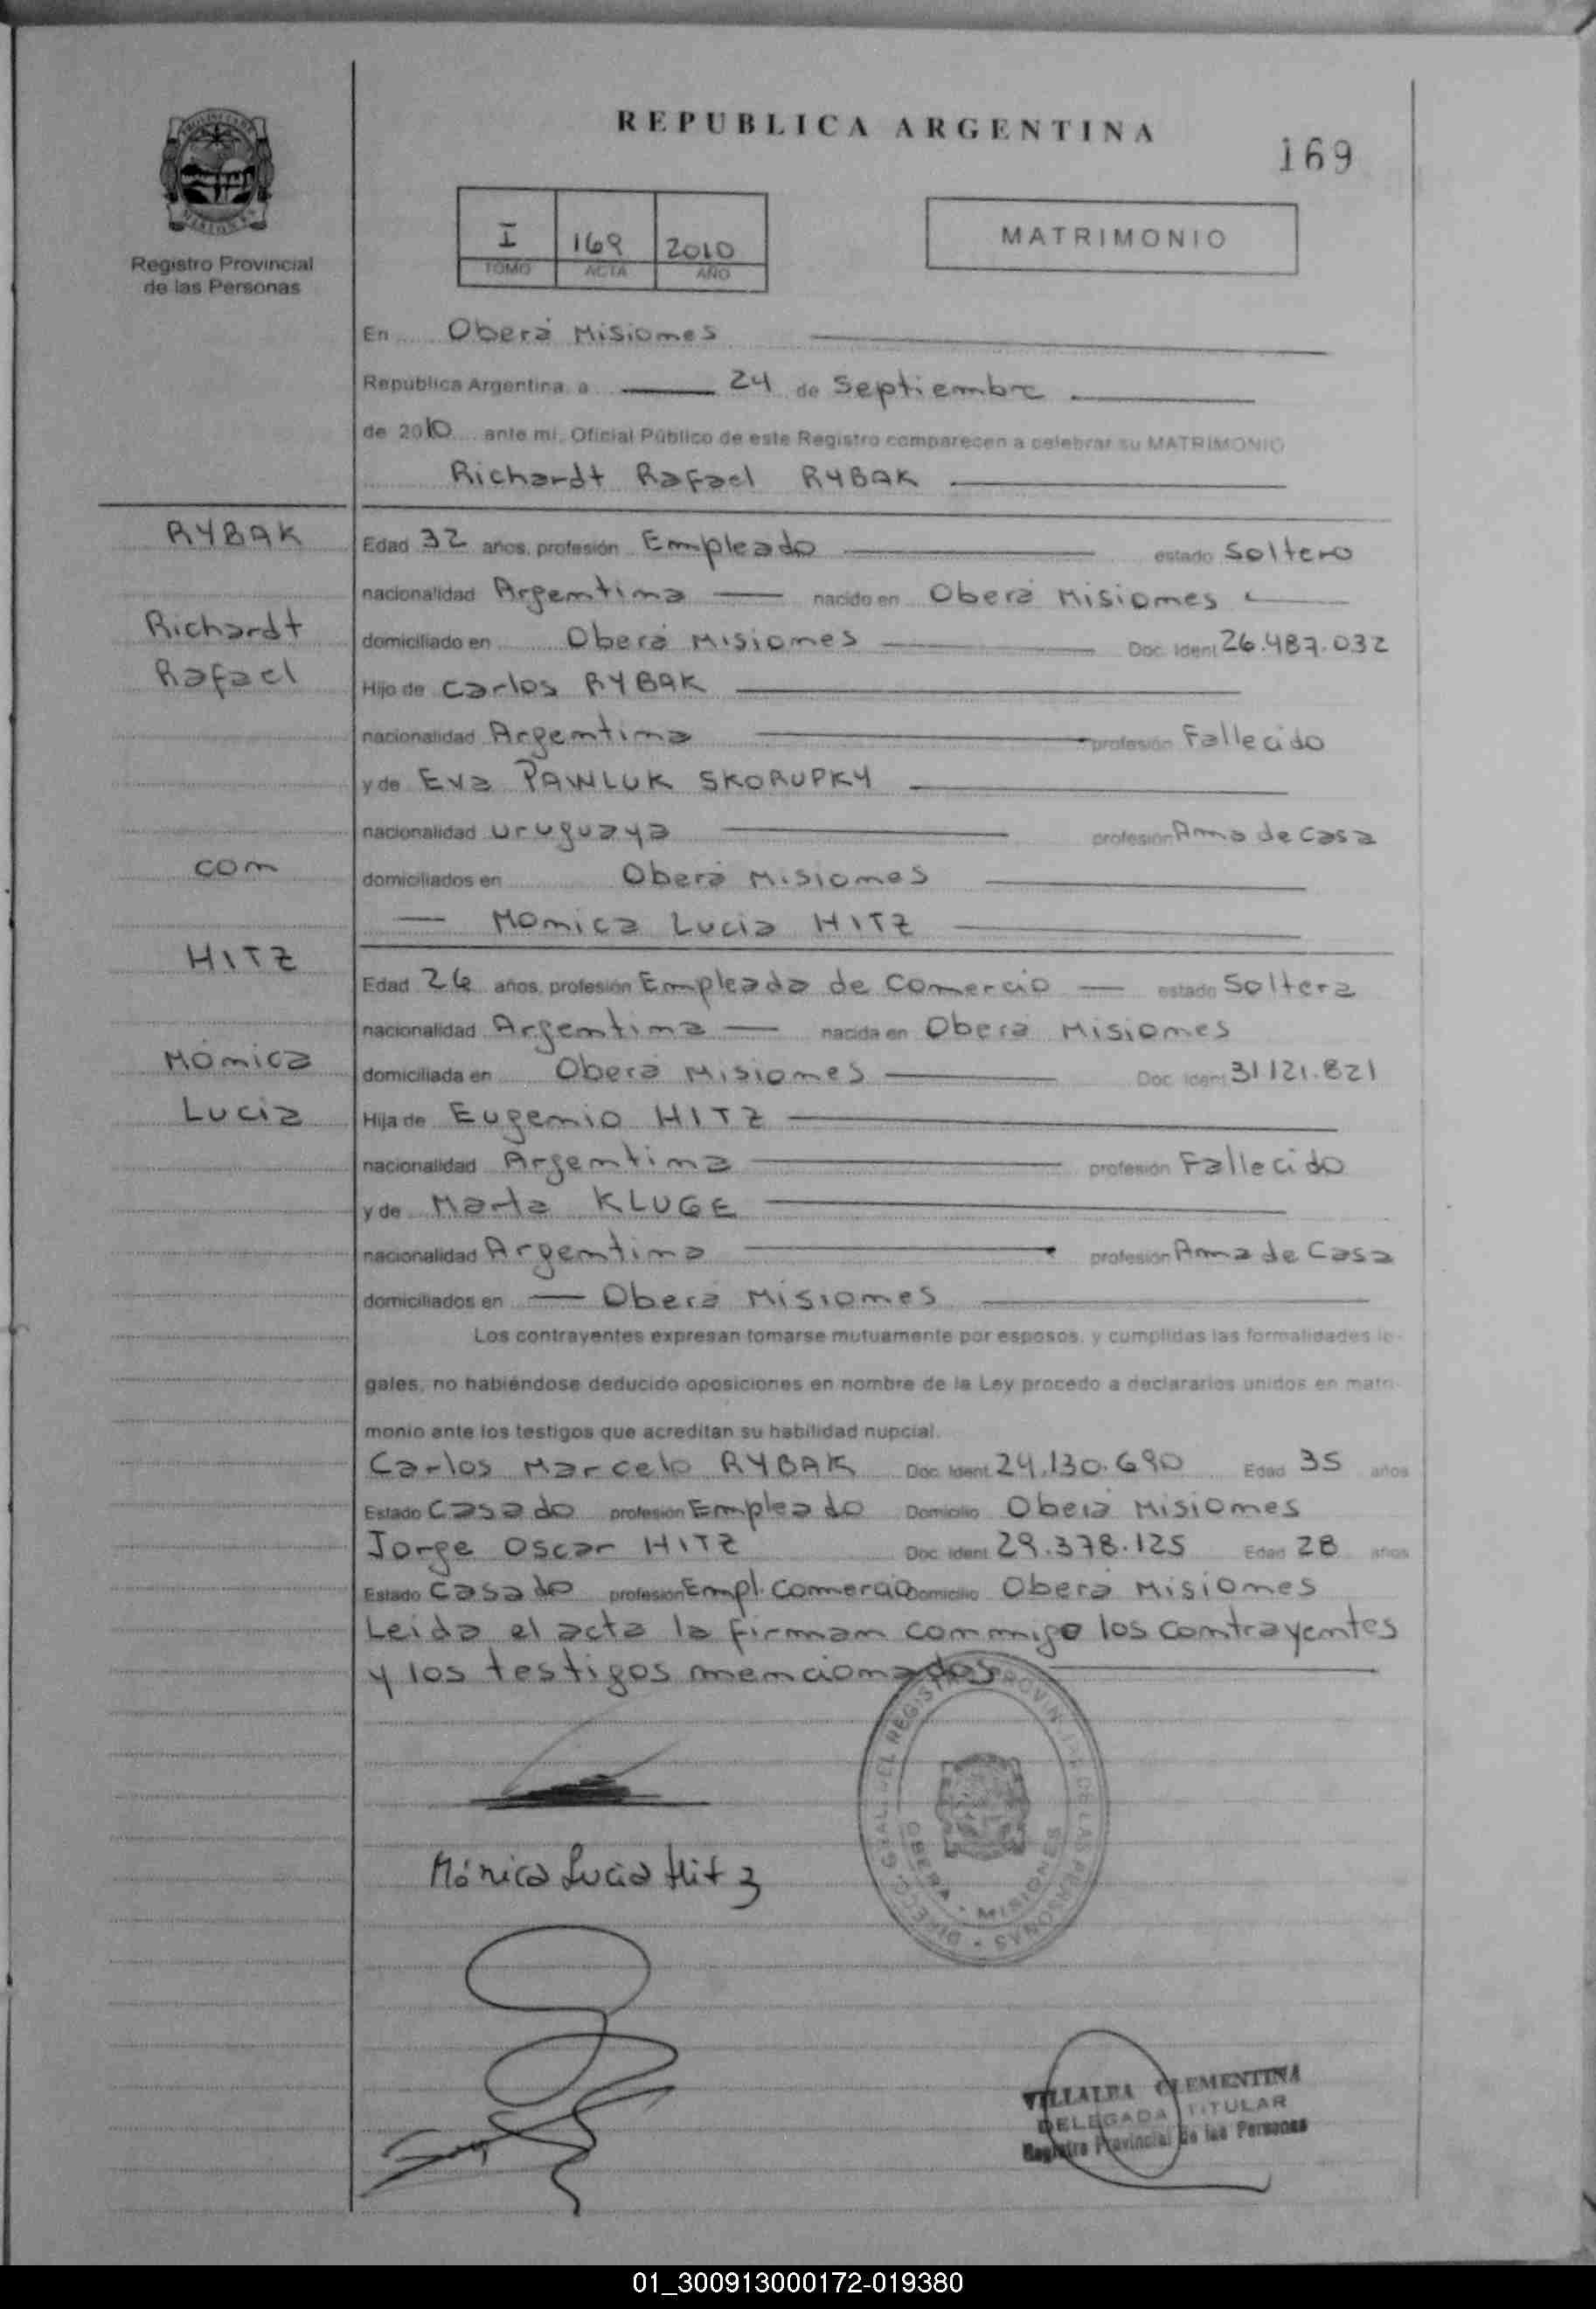 REPUBLICA ARGENTINA
169
Registro Provincial
de las Personas
I 169 2010
TOMO ACTA AÑO
MATRIMONIO
En Oberá Misiones
República Argentina, a 24 de Septiembre
de 2010 ante mi, Oficial Público de este Registro comparecen a celebrar su MATRIMONIO
Richardt Rafael RYBAK
RYBAK
Edad 32 años, profesión Empleado estado Soltero
nacionalidad Argentina nacido en Oberá Misiones
Richardt
domiciliado en Oberá Misiones Doc. Ident 26.487.032
Rafael
Hijo de Carlos RYBAK
nacionalidad Argentina profesión Fallecido
y de Eva PAWLUK SKORUPKY
nacionalidad Uruguaya profesión Ama de Casa
con
domiciliados en Oberá Misiones
Monica Lucia HITZ
HITZ
Edad 26 años, profesión Empleada de Comercio estado Soltera
nacionalidad Argentina nacida en Oberá Misiones
Mónica
domiciliada en Oberá Misiones Doc. Ident 31121.821
Lucia
Hija de Eugenio HITZ
nacionalidad Argentina profesión Fallecido
y de Marta KLUGE
nacionalidad Argentina profesión Ama de Casa
domiciliados en Oberá Misiones
Los contrayentes expresan tomarse mutuamente por esposos, y cumplidas las formalidades le-
gales, no habiéndose deducido oposiciones en nombre de la Ley procedo a declararlos unidos en matri-
monio ante los testigos que acreditan su habilidad nupcial.
Carlos Marcelo RYBAK Doc. Ident. 24.130.690 Edad 35 años
Estado Casado profesión Empleado Domicilio Oberá Misiones
Jorge Oscar HITZ Doc. Ident. 29.378.125 Edad 28 años
Estado Casado profesión Empl. Comercio Domicilio Oberá Misiones
Leida el acta la firman conmigo los contrayentes
y los testigos mencionados
DIRECC. GRAL. DEL REGISTRO PROVINCIAL DE LAS PERSONAS
OBERA - MISIONES
Mónica Lucia Hitz
VILLALBA CLEMENTINA
DELEGADA TITULAR
Registro Provincial de las Personas
01_300913000172-019380